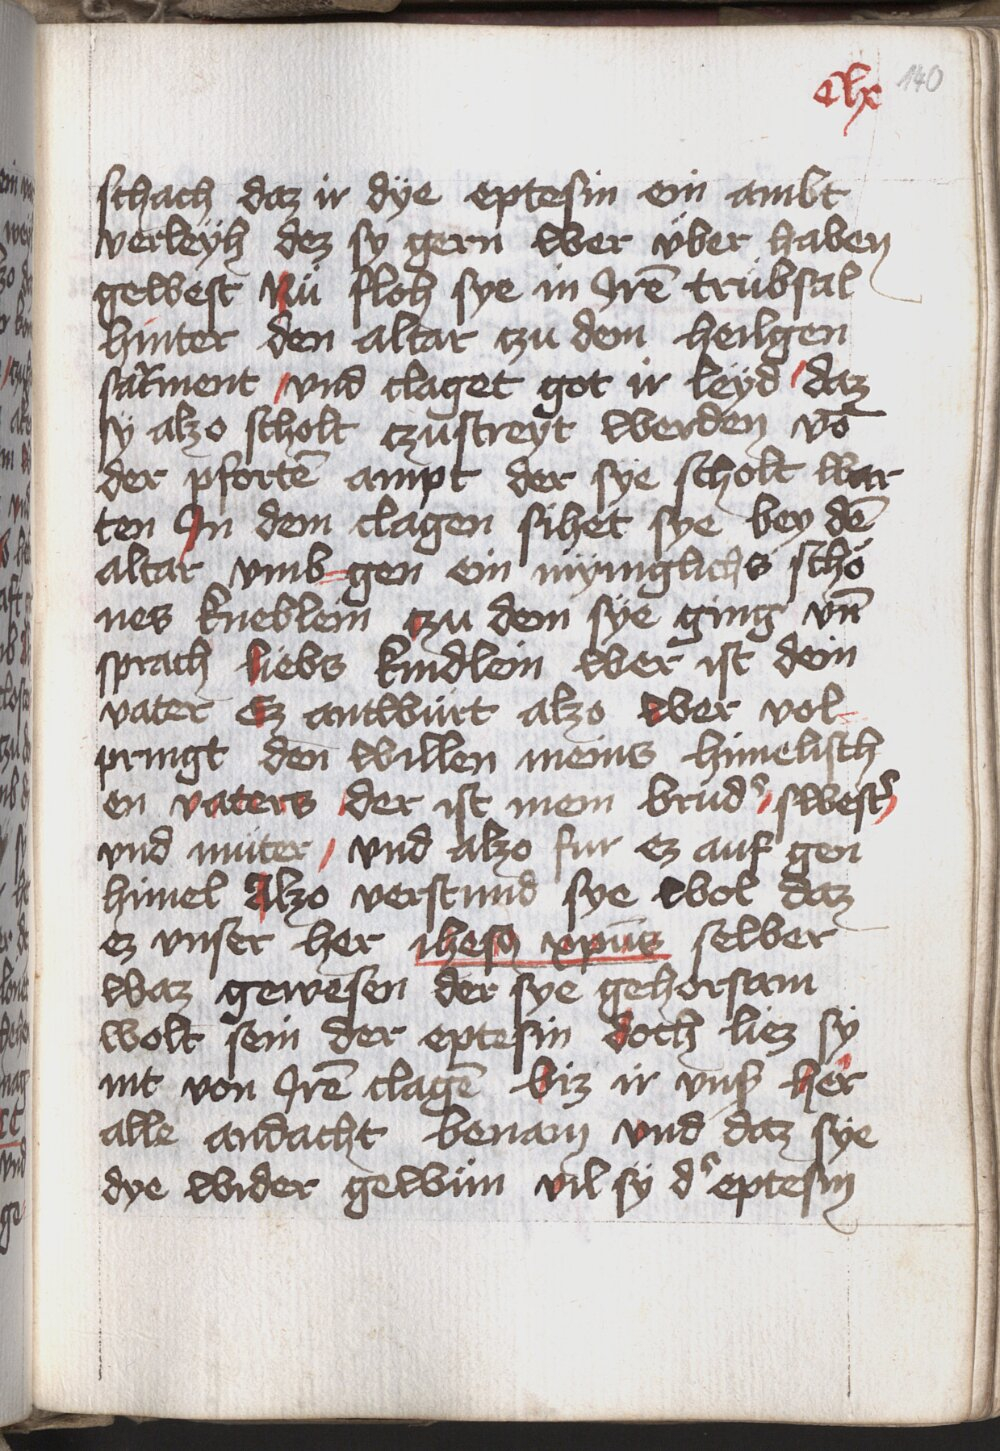 clx 140
schach daz ir dÿe eptesin ein ambt
verleÿh dez sy gern wer vber haben
gewest Nü floh sye in Irē trübsal
hinter den altar czu dem heilgen
sacment / vnd claget got ir leÿd / daz
sÿ alzo scholt czustreÿt werden võ
der pfortē ampt der sÿe scholt war
ten In dem clagen sihet sye bey dē
altar vmb gen ein mÿniglichs schö
nes kneblein czu dem sÿe ging vn̄
sprach liebs kindlein wer ist dein
vater Ez antwürt alzo wer vol-
pringt den willen meins himelisch
en vaters / der ist mein brudˢ / swestˢ /
vnd müter / vnd alzo fur ez auf gen
himel Alzo verstund sye wol daz
ez vnser her ihesq xpūs selber
waz gewesen der sye gehorsam
wolt sein der eptesin doch liez sÿ
nit von Irē clagē biz ir vnß her
alle andacht benam vnd daz sÿe
dye wider gewüm vil sÿ dˢ eptesin